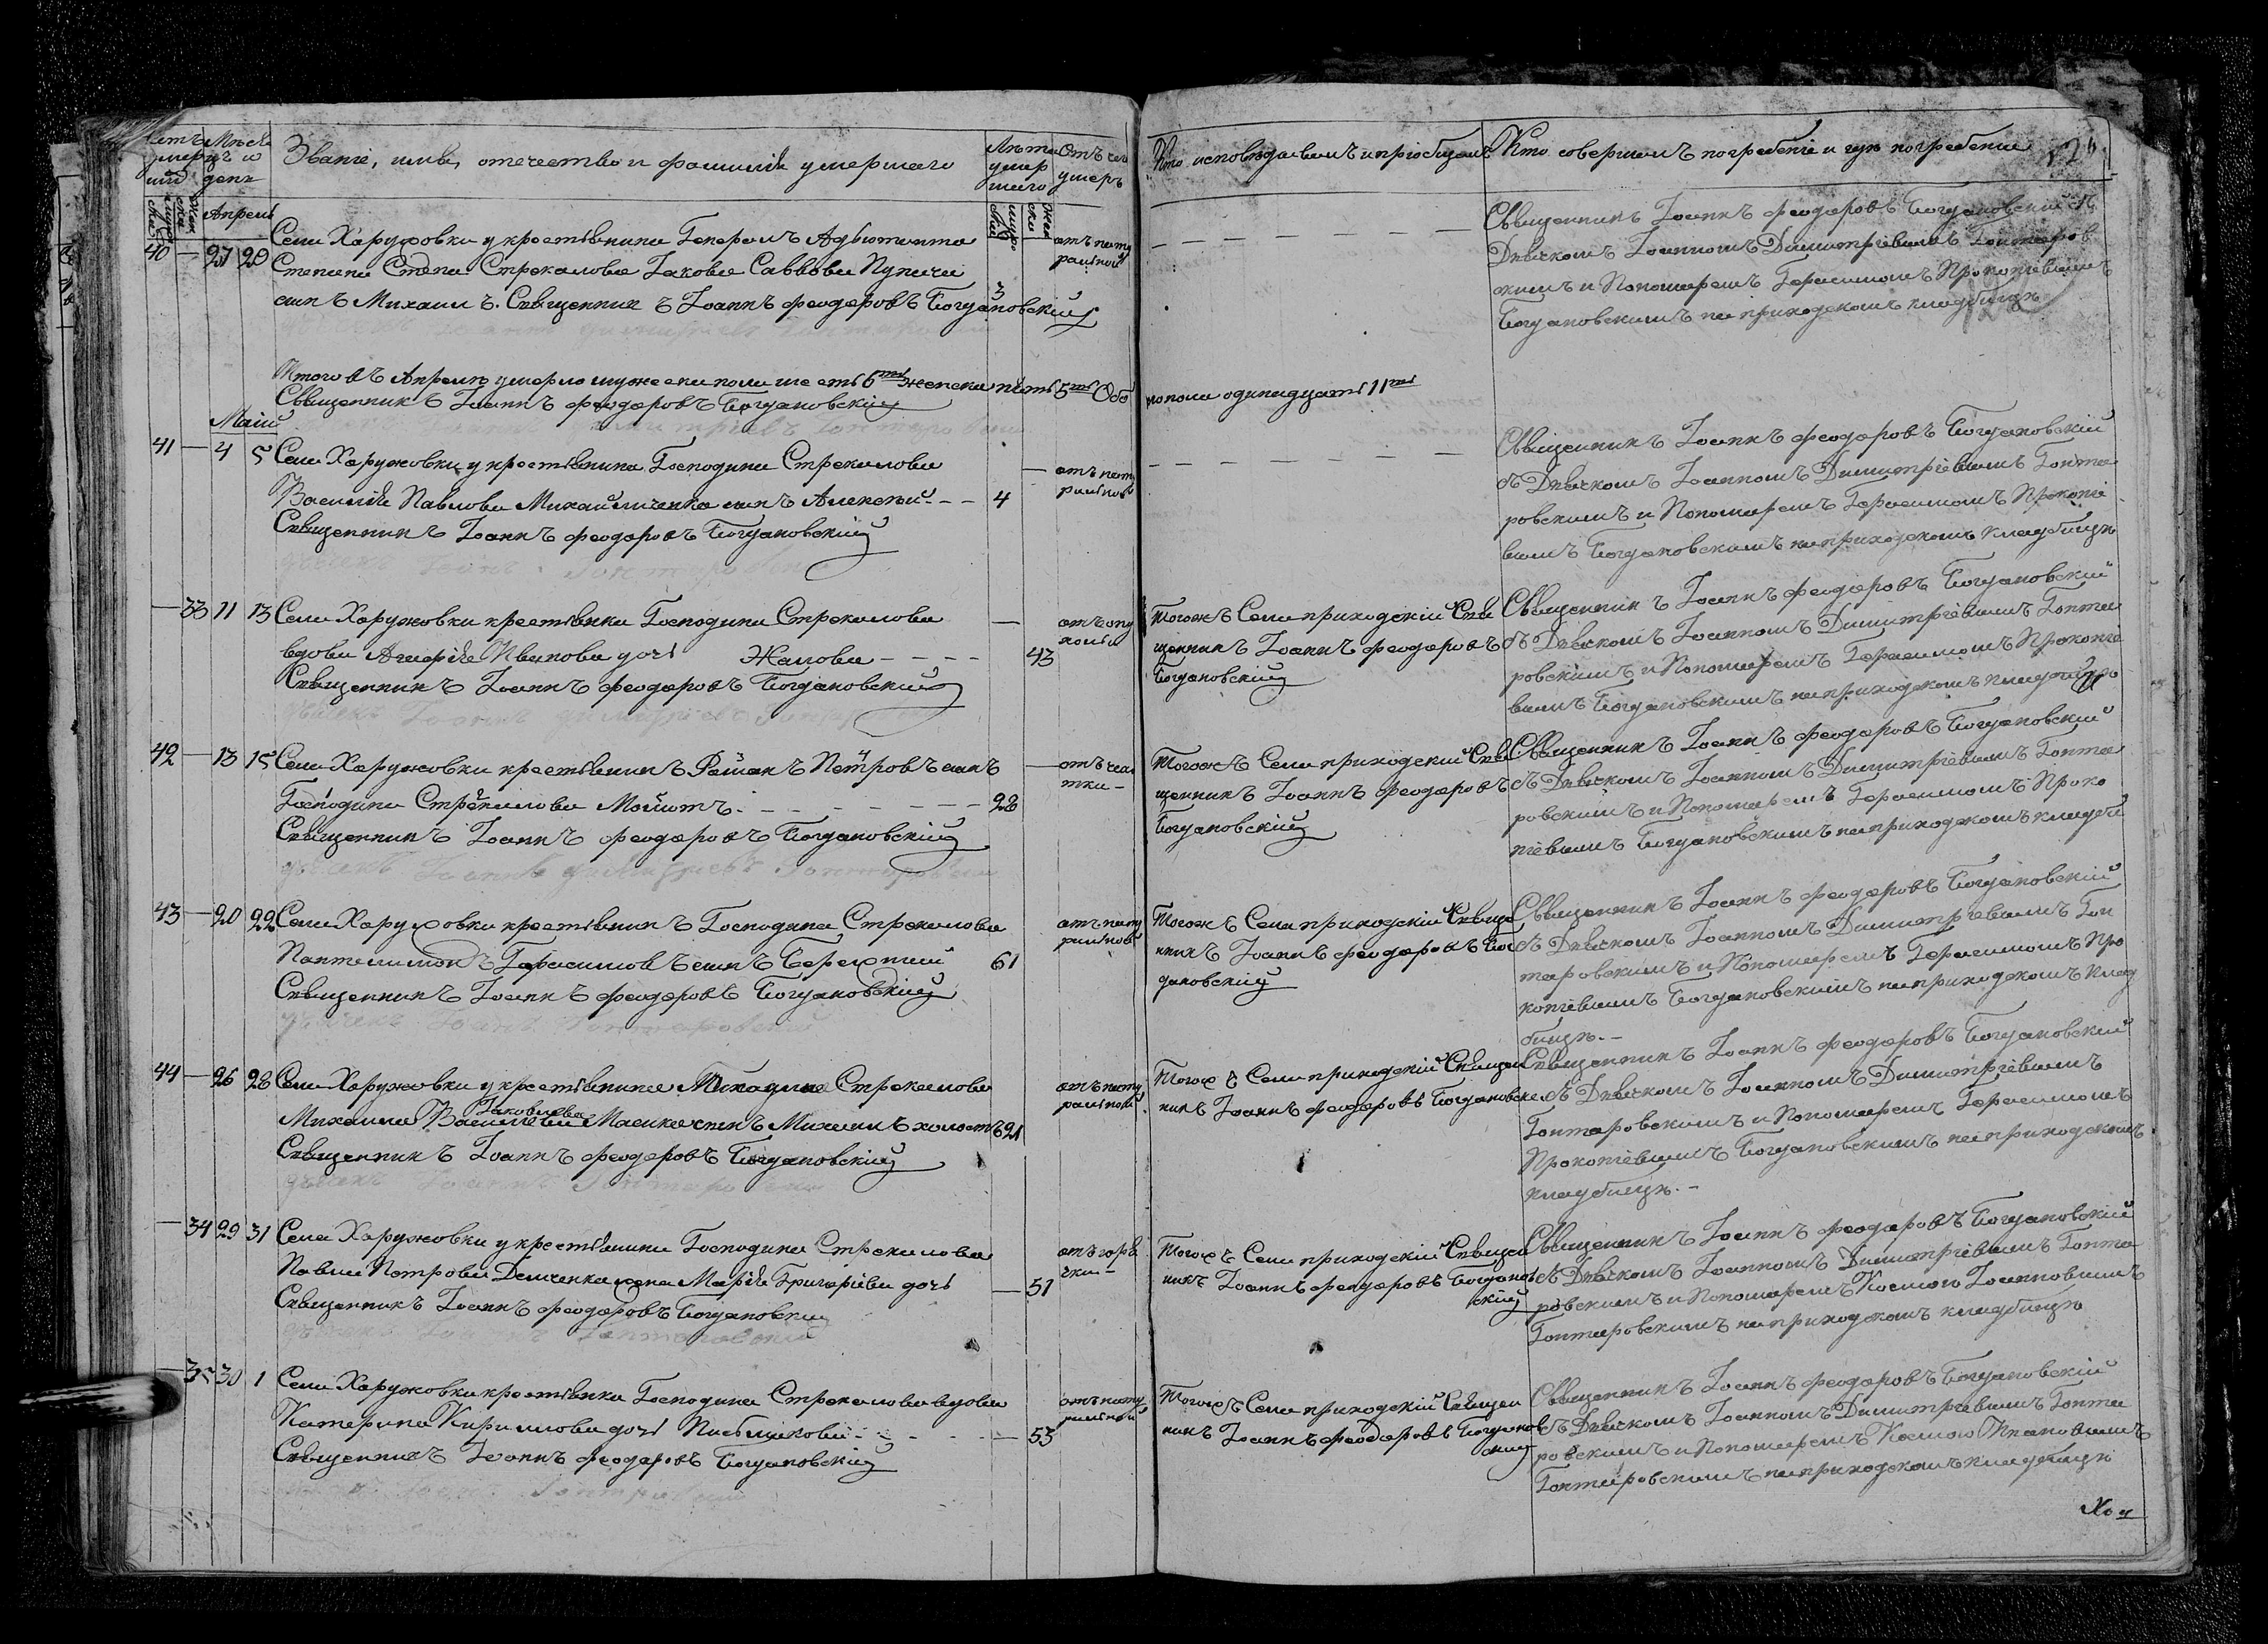 Звание, имя, отечество и фамилія умершаго
Лѣта умер шаго
Отъ чего умеръ
Кто исповѣдывалъ и пріобщалъ
Кто совершалъ погребеніе и гдѣ погребены
Апрель
40 — 27 29
Села Харужовки у крестьянина Генералъ Адьютанта
Степана Степа. Стрекалова Іакова Саввова
сынъ Михаилъ. Священникъ Іоаннъ Феодоровъ Богдановскій
3
отъ нату
ральной
Священникъ Іоаннъ Феодоровъ Богдановскій съ
Дьячкомъ Іоанномъ Димитріевымъ Гонтаров
скимъ и Пономаремъ Герасимомъ Прокопіевымъ
Богдановскимъ на приходскомъ кладбищѣ
Итого въ Апрелѣ умерло мужеска пола шесть 6ть женска пять 5ть Обо
его пола одинадцать 11ть
Священникъ Іоаннъ Феодоровъ Богдановскій
Маій
41 — 4 5
Села Харужовки у крестьянина Господина Стрекалова
Василія Павлова Михайличенка сынъ Алексѣй - - - 4
Священникъ Іоаннъ Феодоровъ Богдановскій
отъ нату
ральной
Священникъ Іоаннъ Феодоровъ Богдановскій
съ Дьячкомъ Іоанномъ Димитріевымъ Гонта
ровскимъ и Пономаремъ Герасимомъ Прокопіе
вымъ Богдановскимъ на приходскомъ кладбищѣ
— 33 11 13
Села Харужовки крестьянка Господина Стрекалова
вдова Агафія Иванова дочь Жалова - - - - 43
Священникъ Іоаннъ Феодоровъ Богдановскій
отъ опу
холи
Тогожъ Села приходскій Свя
щенникъ Іоаннъ Феодоровъ
Богдановскій
Священникъ Іоаннъ Феодоровъ Богдановскій
съ Дьячкомъ Іоанномъ Димитріевымъ Гонта
ровскимъ и Пономаремъ Герасимомъ Прокопіе
вымъ Богдановскимъ на приходскомъ
42 — 13 15
Села Харужовки крестьянинъ Романъ Петровъ сынъ
Господина Стрекалова - - - - - - 28
Священникъ Іоаннъ Феодоровъ Богдановскій
отъ чах
тки -
Тогожъ Села приходскій Свя
щенникъ Іоаннъ Феодоровъ
Богдановскій
Священникъ Іоаннъ Феодоровъ Богдановскій
съ Дьячкомъ Іоанномъ Димитріевымъ Гонта
ровскимъ и Пономаремъ Герасимомъ Проко
піевымъ Богдановскимъ на приходскомъ кладб
43 — 20 22
Села Харужовки крестьянинъ Господина Стрекалова
Пантелимонъ Герасимовъ сынъ Бережный 61
Священникъ Іоаннъ Феодоровъ Богдановскій
отъ нату
ральной
Тогожъ Села приходскій Свяще
нникъ Іоаннъ Феодоровъ Бог
дановскій
Священникъ Іоаннъ Феодоровъ Богдановскій
съ Дьячкомъ Іоанномъ Димитріевымъ Гон
таровскимъ и Пономаремъ Герасимомъ Про
копіевымъ Богдановскимъ на приходскомъ клад
бищѣ. -
44 — 26 28
Села Харужовки у крестьянина Господина Стрекалова
Іаковлева
Михаила Масика сынъ Михаилъ холостъ 21
Священникъ Іоаннъ Феодоровъ Богдановскій
отъ нату
ральной
Тогожъ Села приходскій Священ
никъ Іоаннъ Феодоровъ Богдановскій
Священникъ Іоаннъ Феодоровъ Богдановскій
съ Дьячкомъ Іоанномъ Димитріевымъ
Гонтаровскимъ и Пономаремъ Герасимомъ
Прокопіевымъ Богдановскимъ на приходскомъ
кладбищѣ. -
— 34 29 31
Села Харужовки у крестьянина Господина Стрекалова
Павла Петрова Демченка жена Марія Григоріева дочь — 51
Священникъ Іоаннъ Феодоровъ Богдановскій
отъ горя
чки -
Тогожъ Села приходскій Священ
никъ Іоаннъ Феодоровъ Богданов
скій
Священникъ Іоаннъ Феодоровъ Богдановскій
съ Дьячкомъ Іоанномъ Димитріевымъ Гонта
ровскимъ и Пономаремъ Космою Іоанновымъ
Гонтаровскимъ на приходскомъ кладбищѣ
— 35 30 1
Села Харужовки крестьянка Господина Стрекалова вдова
Катерина Кирилова дочь - - - - — 53
Священникъ Іоаннъ Феодоровъ Богдановскій
отъ нату
ральной
Тогожъ Села приходскій Священ
никъ Іоаннъ Феодоровъ Богданов
скій
Священникъ Іоаннъ Феодоровъ Богдановскій
съ Дьячкомъ Іоанномъ Димитріевымъ Гонта
ровскимъ и Пономаремъ Космою Ивановымъ
Гонтаровскимъ на приходскомъ кладбищѣ